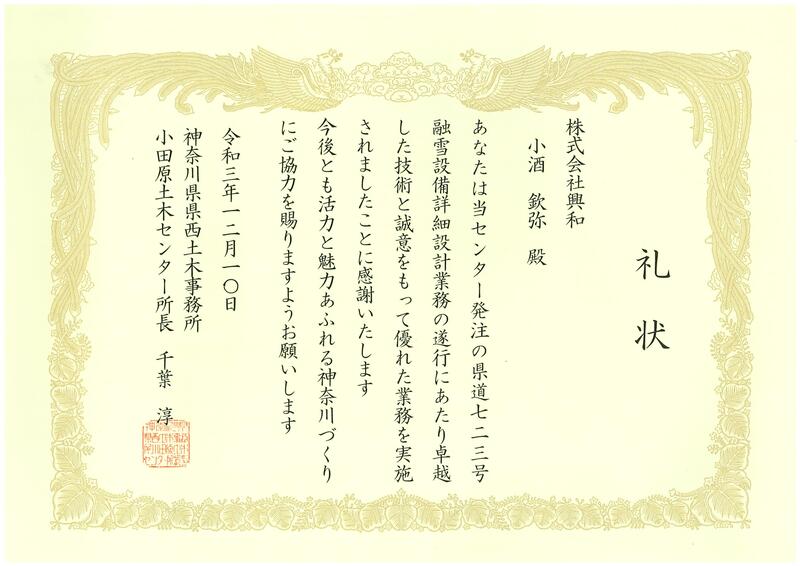 礼状
株式会社興和
小酒 欽弥 殿
あなたは当センター発注の県道七二三号
融雪設備詳細設計業務の遂行にあたり卓越
した技術と誠意をもって優れた業務を実施
されましたことに感謝いたします
今後とも活力と魅力あふれる神奈川づくり
にご協力を賜りますようお願いします
令和三年一二月一〇日
神奈川県県西土木事務所
小田原土木センター所長 千葉 淳